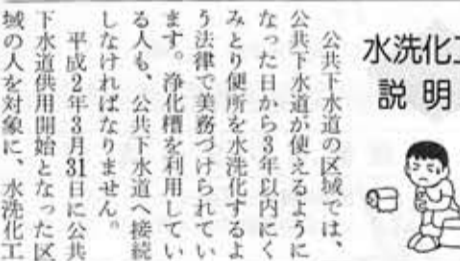 水洗化工
説明
公共下水道の区域では、
公共下水道が使えるように
なった日から3年以内にく
みとり便所を水洗化するよ
う法律で義務づけられてい
ます。浄化槽を利用してい
る人も、公共下水道へ接続
しなければなりません。
平成2年3月31日に公共
下水道供用開始となった区
域の人を対象に、水洗化工